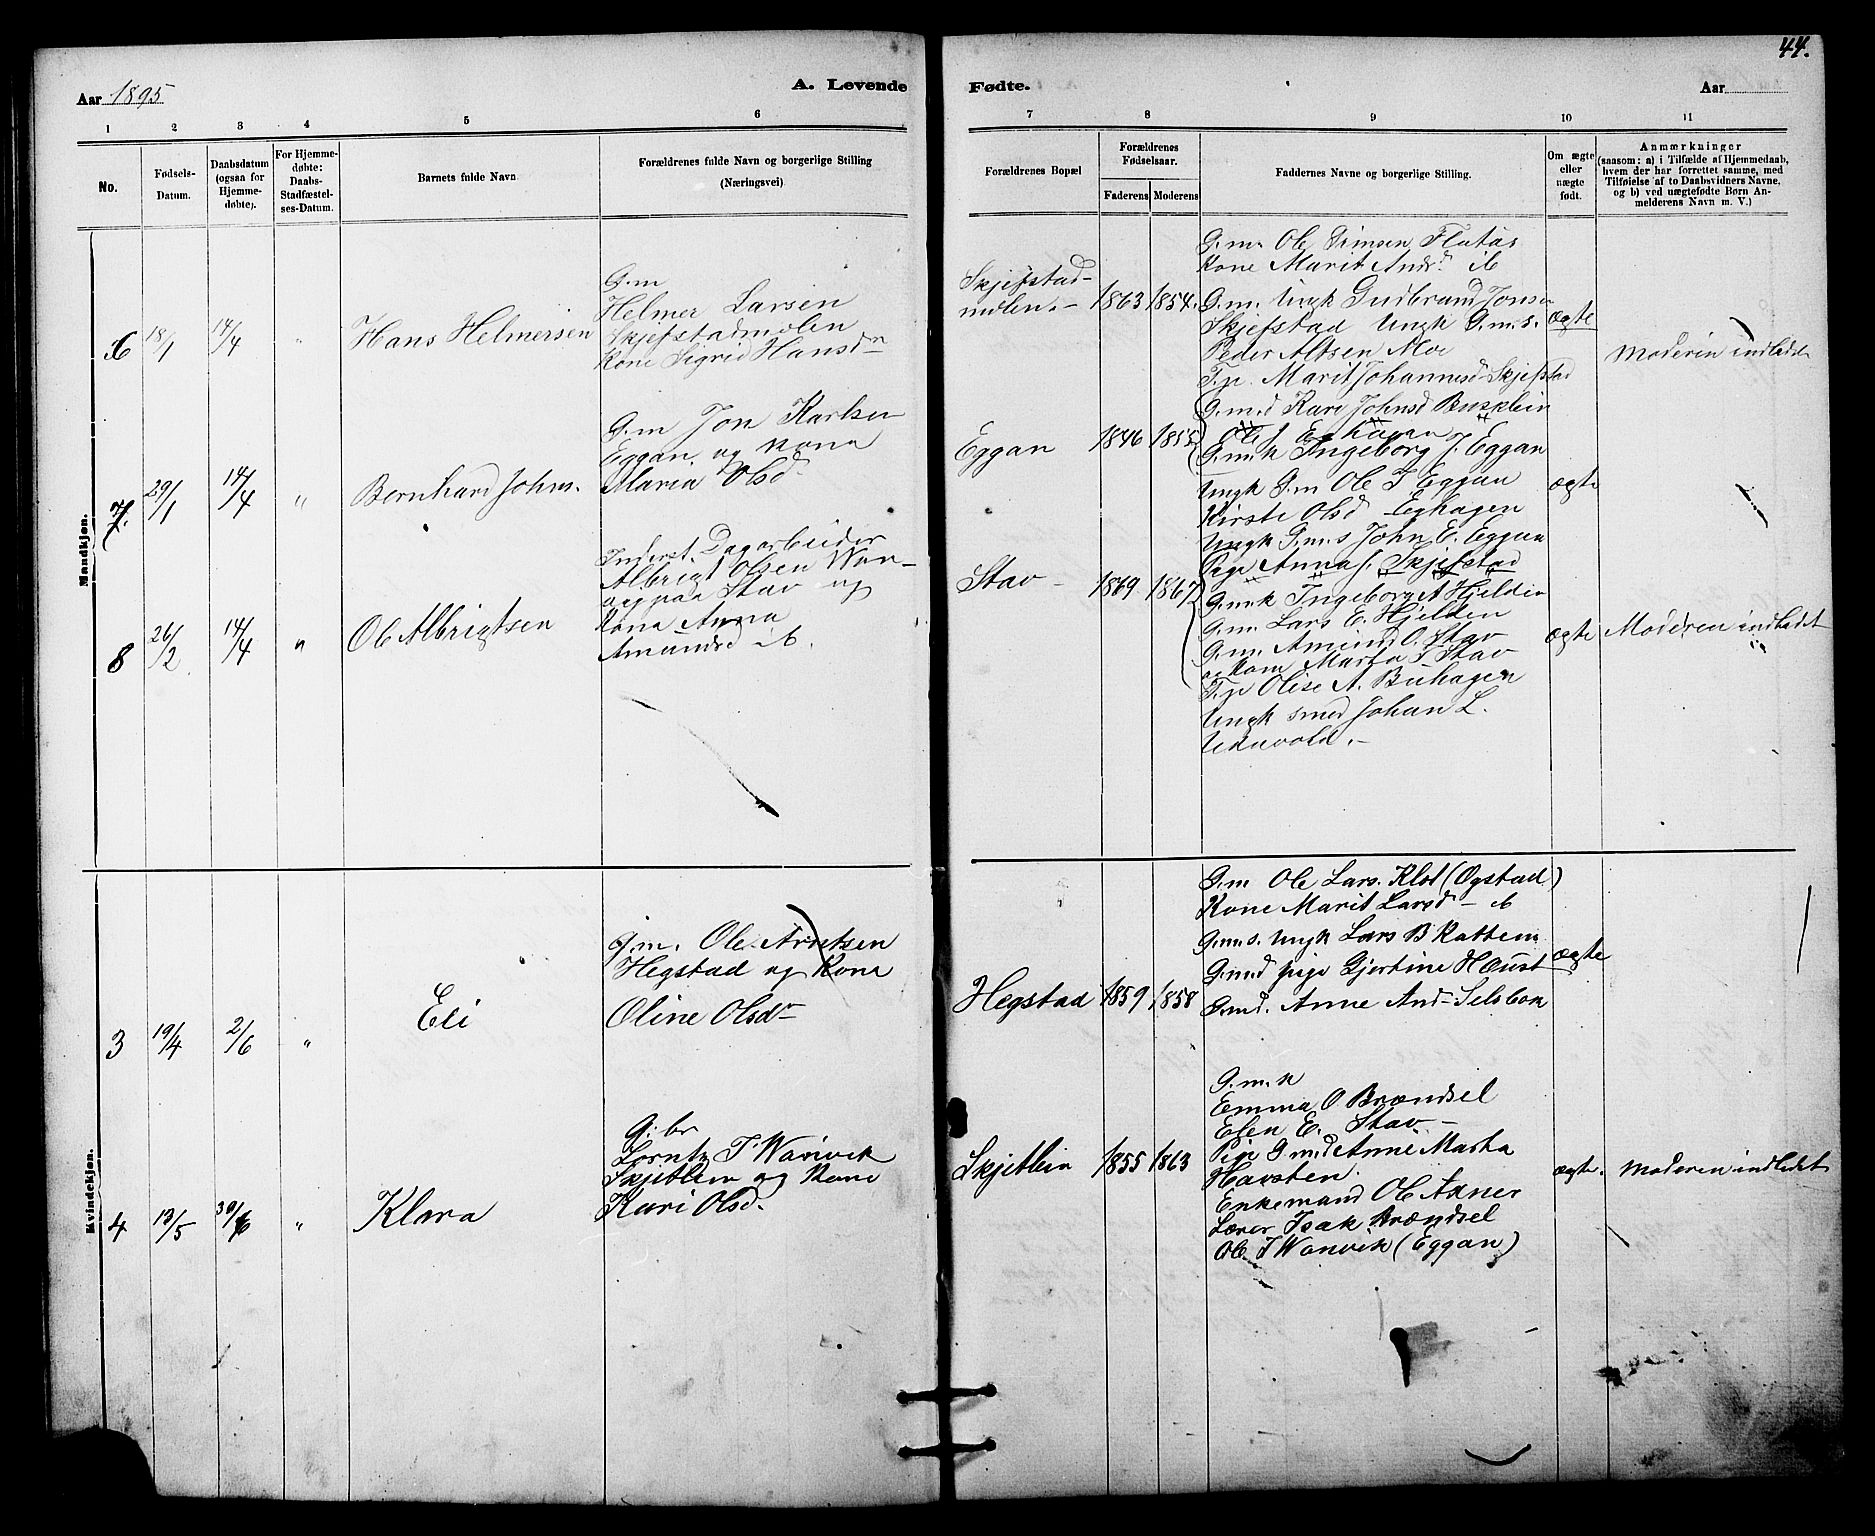 44.
Aar 1895
A. Levende
Fødte.
Aar
1 2 3 4 5 6 7 8 9 10 11
No.
Fødsels-
Datum.
Daabsdatum
(ogsaa for
Hjemme-
døbte).
For Hjemme-
døbte:
Daabs-
Stadfæstel-
ses-Datum.
Barnets fulde Navn
Forældrenes fulde Navn og borgerlige Stilling
(Næringsvei)
Forældrenes Bopæl
Forældrenes
Fødselsaar.
Faderens Moderens
Faddernes Navne og borgerlige Stilling.
Om ægte
eller
uægte
født.
Anmærkninger
(saasom: a) i Tilfælde af Hjemmedaab,
hvem der har forrettet samme, med
Tilføielse af to Daabsvidners Navne,
og b) ved uægtefødte Børn An-
melderens Navn m. V.)
Mandkjøn.
6 18/1 14/4 "
Hans Helmersen
G.m
Helmer Larsen
Skjefstadmolen
Kone Sigrid Hansdr
Skjefstad-
mølen.-
1863 1854.
G.m. Ole Simsen Flatås
Kone Marit Andrd ib
G.m. Ungk Gudbrand Jonsen
Skjefstad Ungk G.m.s.
Peder Altsen Moe
T.p. Marit Johannesd Skjefstad
ægte
Moderen indledet
7. 29/1 14/4 "
Bernhard Johns.
G.m Jon Karlsen
Eggan og Kona
Maria Olsd
Eggan
1846 1855
G.m.d Kari Johnsd Busklein
Ole J. Eghagen
G.m.k Ingeborg J. Eggan
Ungk G.m Ole J Eggan
Kirste Olsd Eghagen
Ungk G.m.s John E. Eggan
Pige Anna J. Skjefstad
ægte
8 26/2 14/4 "
Ole Albrigtsen
Inderst. Dagarbeider
Albrigt Olsen Wan-
vig paa Stav og
Kona Anna
Amundsd ib.
Stav -
1869 1867
G.m.k Ingeborg A Hjelden
G.m. Lars E. Hjelden
G.m. Amund O. Stav
og Kone Marta J Stav
T.p Olise A. Buhagen
Ungk smed Johan L.
ægte
Moderen indledet
Kvindekjøn.
3 19/4 2/6 "
Eli
G.m. Ole Arntsen
Hegstad og Kone
Oline Olsdr
Hegstad
1859 1858
G.m Ole Lars. Klet (Øgstad)
Kone Marit Larsd - ib
G.m.s. Ungk Lars B Rattem
G.m.d pige Gjertine Haust
G.md. Anne And- Selsbon
ægte
4 13/5 30/6 "
Klara
G.br
Lorntz J Wanvik
Skjetlein og Kone
Kari Olsd.
Skjetlein
1855 1863
G.m.k
Emma O Brændsel
Elen E. Stav -
Pige G.m.d Anne Marta
Havsten
Enkemand Ole Axner
Lærer Isak Brændsel
Ole J Wanvik (Eggan)
ægte.
Moderen indledet